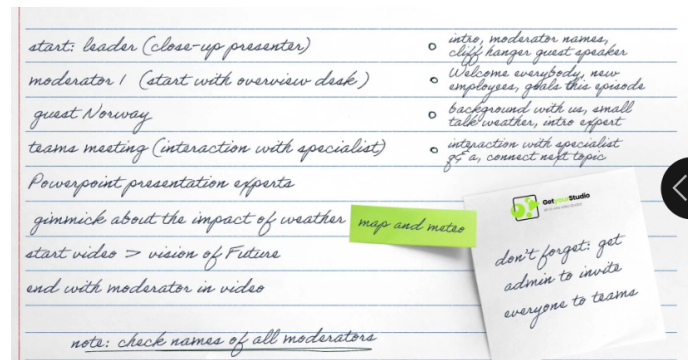 start: leader (close-up presenter)
moderator 1 (start with overview desk)
guest Norway
teams meeting (interaction with specialist)
Powerpoint presentation experts
gimmick about the impact of weather
map and meteo
start video > vision of Future
end with moderator in video
note: check names of all moderators
intro, moderator names,
cliff hanger guest speaker
Welcome everybody, new
employees, goals this episode
background with us, small
talk weather, intro expert
interaction with specialist
q& a, connect next topic
GetyourStudio
don't forget: get
admin to invite
everyone to teams